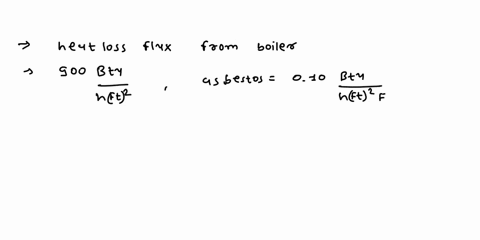 → heat loss flux from boiler
→ 900 Btu/h(ft)², asbestos = 0.10 Btu/h(ft)² F